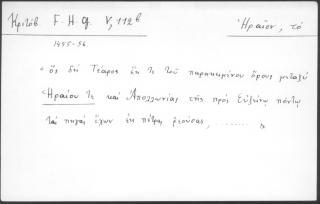 Κριτόβ F.H.G. V, 112b Ἡραῖον, τό
1455-56
« ὃς δὴ Τέαρος ἔκ τε τοῦ παρακειμένου ὄρους μεταξύ
Ἡραίου τε καὶ Ἀπολλωνίας τῆς πρὸς Εὐξείνῳ πόντῳ
τὰς πηγὰς ἔχων ἐκ πέτρας ῥεούσας, ........ »